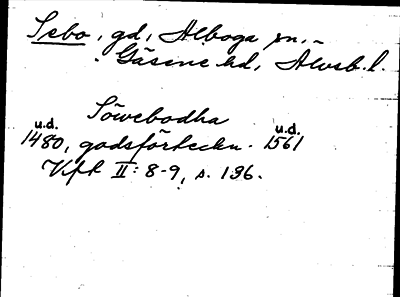 Sebo, gd, Alboga sn.
Gäsene hd, Älvsb. l.
Söwebodha
u.d. u.d.
1480, godsförteckn. 1561
Vfk II: 8-9, s. 136.